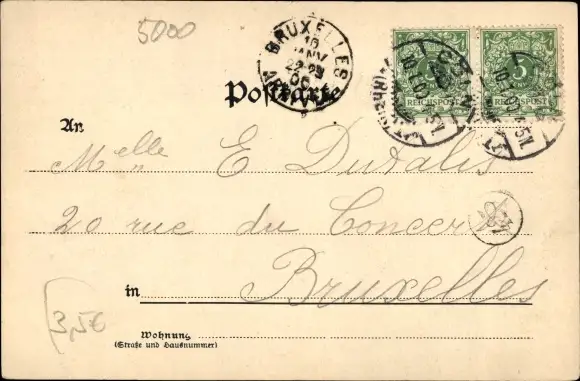 5000
BRUXELLES
10
JANV
ARRIVÉE
5
5
REICHSPOST
REICHSPOST
10.1.00
Postkarte
An
Melle E Dutalis
20 rue du Concert
in Bruxelles
3,5€
Wohnung
(Straße und Hausnummer)